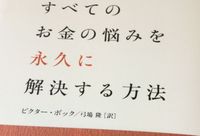 すべての
お金の悩みを
永久に
解決する方法
ビクター・ボック／弓場 隆[訳]